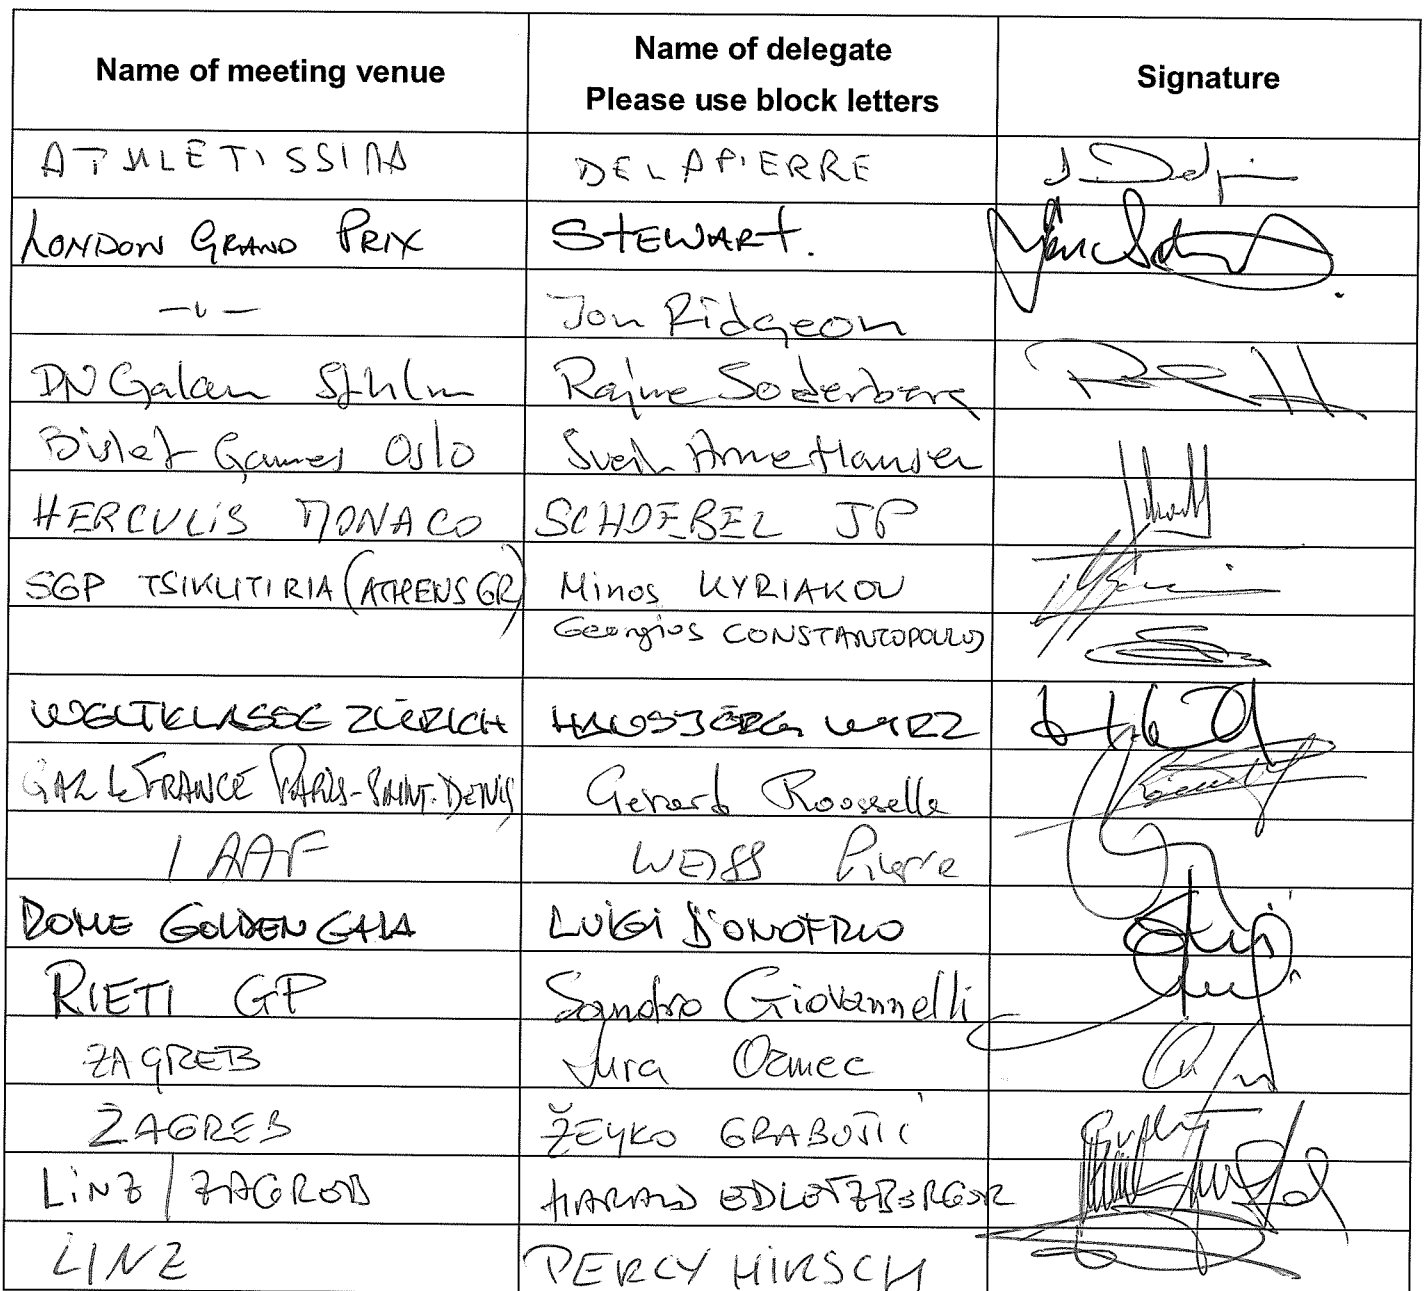 Name of meeting venue Name of delegate Signature
Please use block letters
ATHLETISSIMA DELAPIERRE
LONDON GRAND PRIX STEWART.
—ıı— Jon Ridgeon
DN Galan Sthlm Rajne Soderberg
Bislet Games Oslo Svein Arne Hansen
HERCULIS MONACO SCHOEBEL JP
SGP TSIKLITIRIA (ATHENS GR) Minos KYRIAKOU
Georgios CONSTANTOPOULOS
WELTKLASSE ZÜRICH HANSJÖRG WIRZ
GAZ de FRANCE PARIS-SAINT-DENIS Gérard Rousselle
IAAF WEISS Pierre
ROME GOLDEN GALA LUIGI D'ONOFRIO
RIETI GP Sandro Giovannelli
ZAGREB Jura Ozmec
ZAGREB ŽELJKO GRABUŠIĆ
LINZ / ZAGREB HARALD EDLETZBERGER
LINZ PERCY HIRSCH